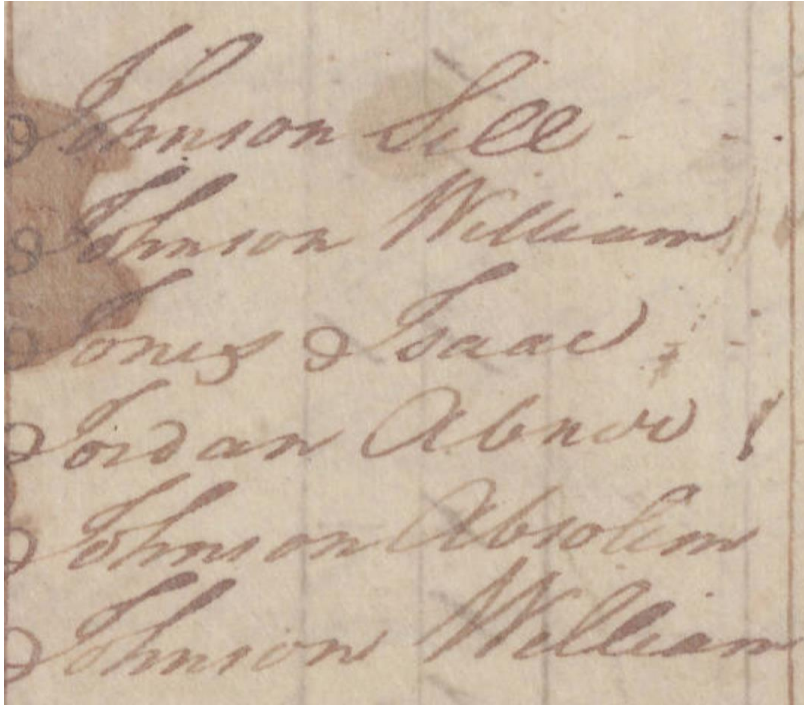 Johnson Sill
Johnson William
Jones Isaac
Jordan Abner
Johnson Absolem
Johnson William